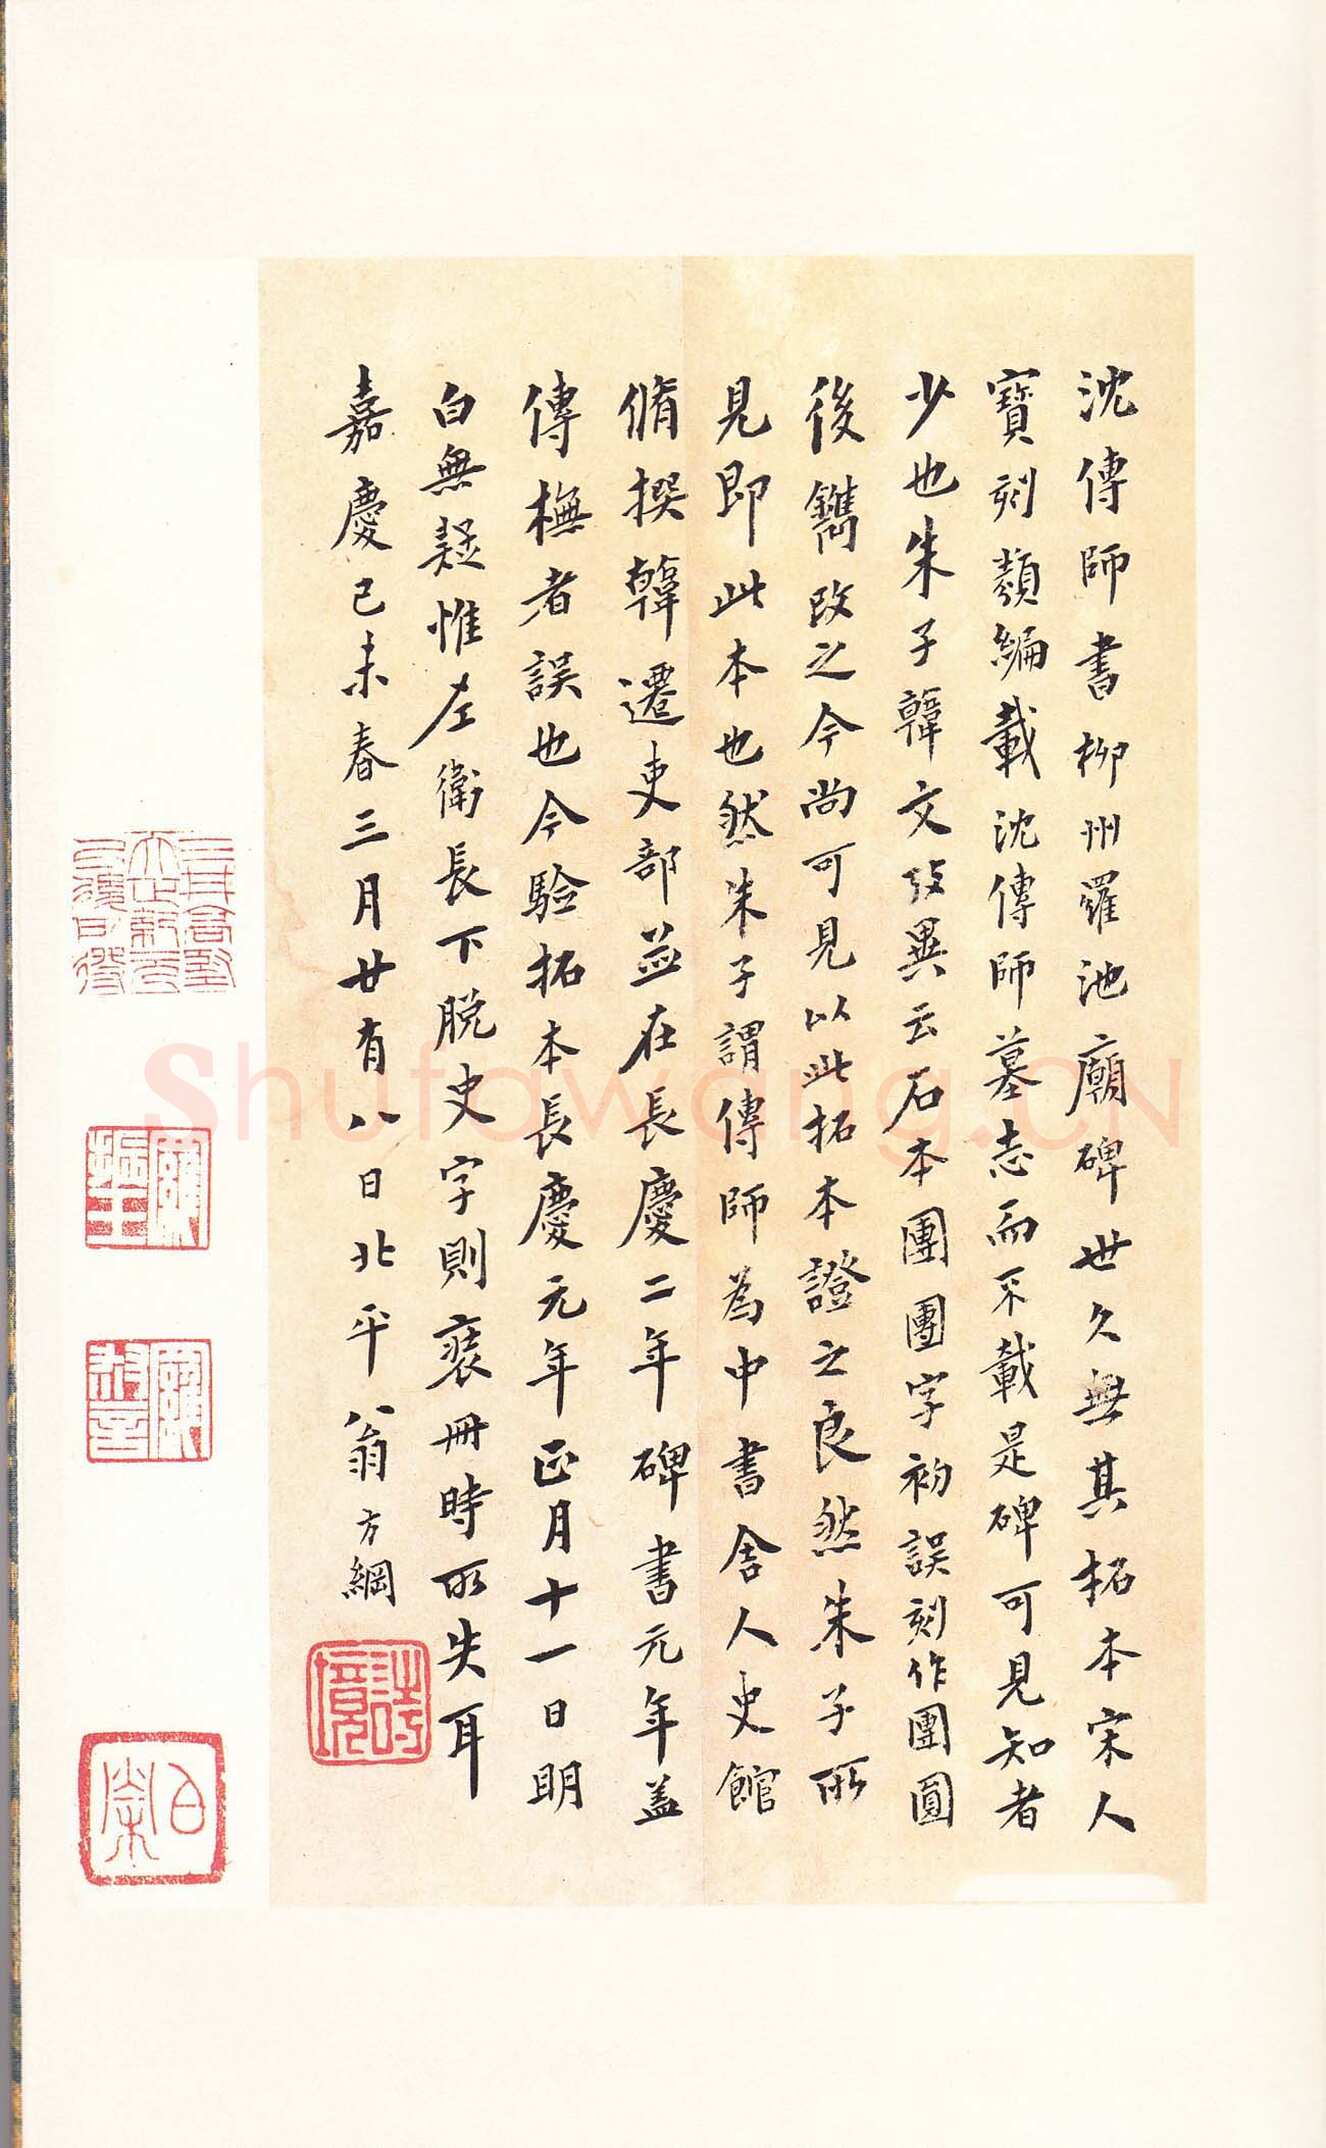 沈傳師書柳州羅池廟碑世久無其拓本宋人
寶刻類編載沈傳師墓志而不載是碑可見知者
少也朱子韓文攷異云石本團團字初誤刻作團圓
後鐫改之今尚可見以此拓本證之良然朱子所
見即此本也然朱子謂傳師為中書舍人史館
脩撰韓遷吏部並在長慶二年碑書元年蓋
傳橅者誤也今驗拓本長慶元年正月十一日明
白無疑惟左衛長下脫史字則裝冊時所失耳
嘉慶己未春三月廿有八日北平翁方綱
詩境
羅振玉
白
Shufawang.CN